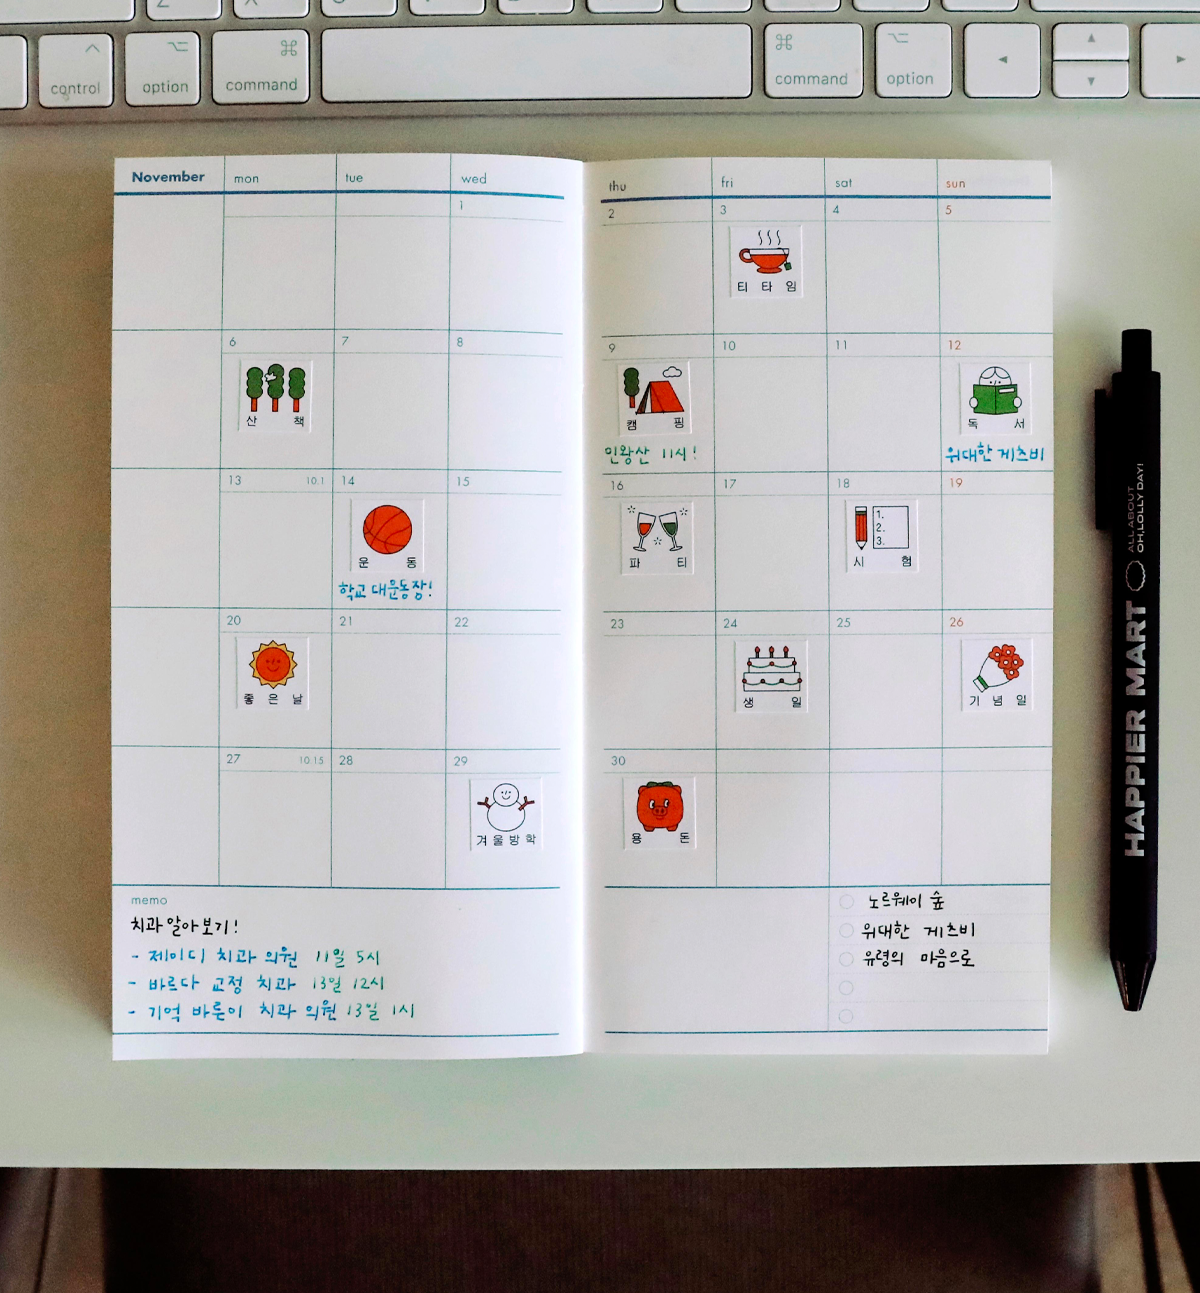 control option command command option
November mon tue wed thu fri sat sun
1 2 3 4 5
티 타 임
6 7 8 9 10 11 12
산 책 캠 핑 독 서
인왕산 11시! 위대한 게츠비
13 10.1 14 15 16 17 18 19
1.
2.
3.
운 동 파 티 시 험
학교 대운동장!
20 21 22 23 24 25 26
좋 은 날 생 일 기 념 일
27 10.15 28 29 30
겨 울 방 학 용 돈
memo
치과 알아보기!
- 제이디 치과 의원 11일 5시
- 바르다 교정 치과 13일 12시
- 기억 바른이 치과 의원 13일 1시
노르웨이 숲
위대한 게츠비
유령의 마음으로
HAPPIER MART
ALL ABOUT
OH, LOLLY DAY!